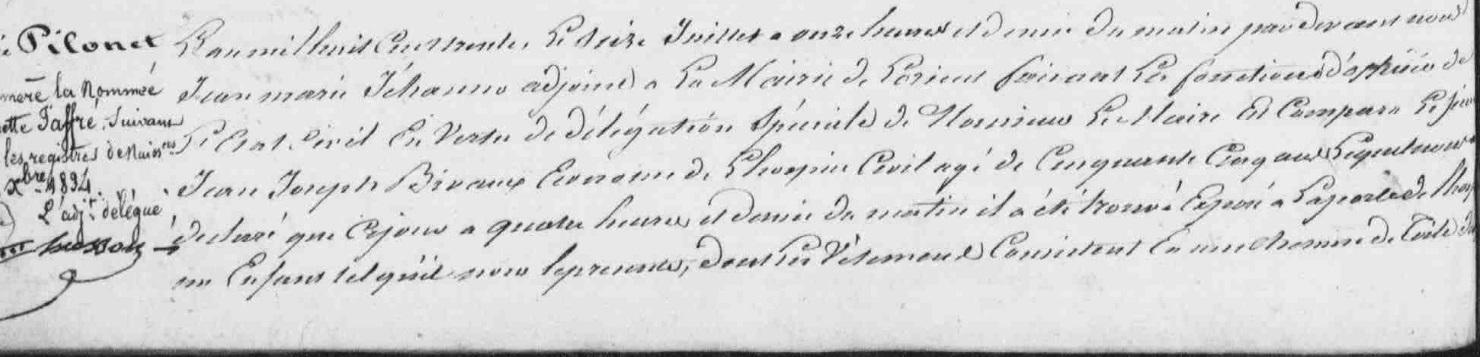 Pilonet
mère la Nommée
ette Jaffre, Suivant
les registres de Naiss.ces
xbre 1834.
L'adj.t délégué
L'an mil huit Cent trente, Le Seize Juillet a onze heures et demie du matin par devant nous
Jean marie Jéhanno adjoint a La Mairie de Lorient faisant Les fonctions d'officier de
L'Etat Civil En Vertu de délégation Spéciale de Monsieur Le Maire Est Comparu Le Sieur
Jean Joseph Econome de L'hospice Civil agé de Cinquante Cinq ans Lequel nous
déclaré que Cejour a quatre heures et demie du matin il a été trouvé Exposé a Laporte de l'hosp
un Enfant tel qu'il nous leprésente, dont Les Vêtements Consistent En une chemise de Toile